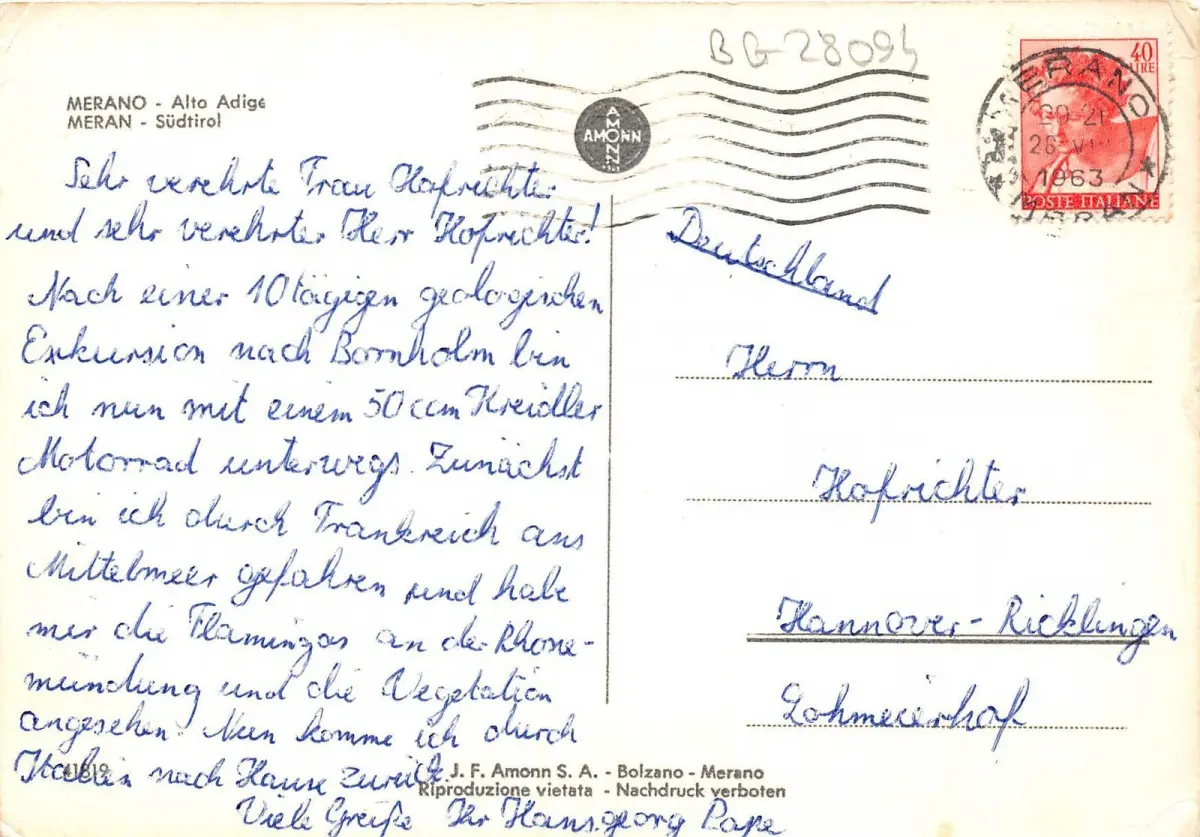 BG-28094
MERANO - Alto Adige
MERAN - Südtirol
AMONN
AMONN
40
LIRE
MERANO
20-21
28-VIII
1963
MERAN
POSTE ITALIANE
Sehr verehrte Frau Hofrichter
und sehr verehrter Herr Hofrichter!
Nach einer 10tägigen geologischen
Exkursion nach Bornholm bin
ich nun mit einem 50 ccm Kreidler
Motorrad unterwegs. Zunächst
bin ich durch Frankreich ans
Mittelmeer gefahren und habe
mir die Flamingos an der Rhone-
mündung und die Vegetation
angesehen. Nun komme ich durch
Italien nach Hause zurück.
Viele Grüße Ihr Hansgeorg Pape
Deutschland
Herrn
Hofrichter
Hannover-Ricklingen
Lohmeierhof
41819
J. F. Amonn S. A. - Bolzano - Merano
Riproduzione vietata - Nachdruck verboten